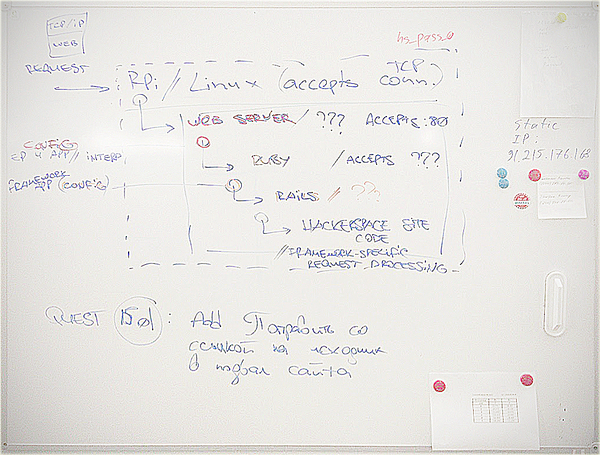 TCP/IP
WEB
REQUEST
hs_pass
RPi // Linux (accepts TCP conn.)
WEB SERVER / ??? ACCEPTS :80
Static
IP:
91.215.176.168
CONFIG
APP // INTERP
RUBY / ACCEPTS ???
FRAMEWORK
APP (CONFIG)
RAILS // ???
HACKERSPACE SITE
CODE
// FRAMEWORK-SPECIFIC
REQUEST PROCESSING
QUEST : Add Поправить со
ссылкой на исходник
в подвал сайта